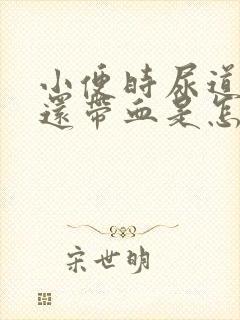 小便時尿道
還帶血是怎
宋世明